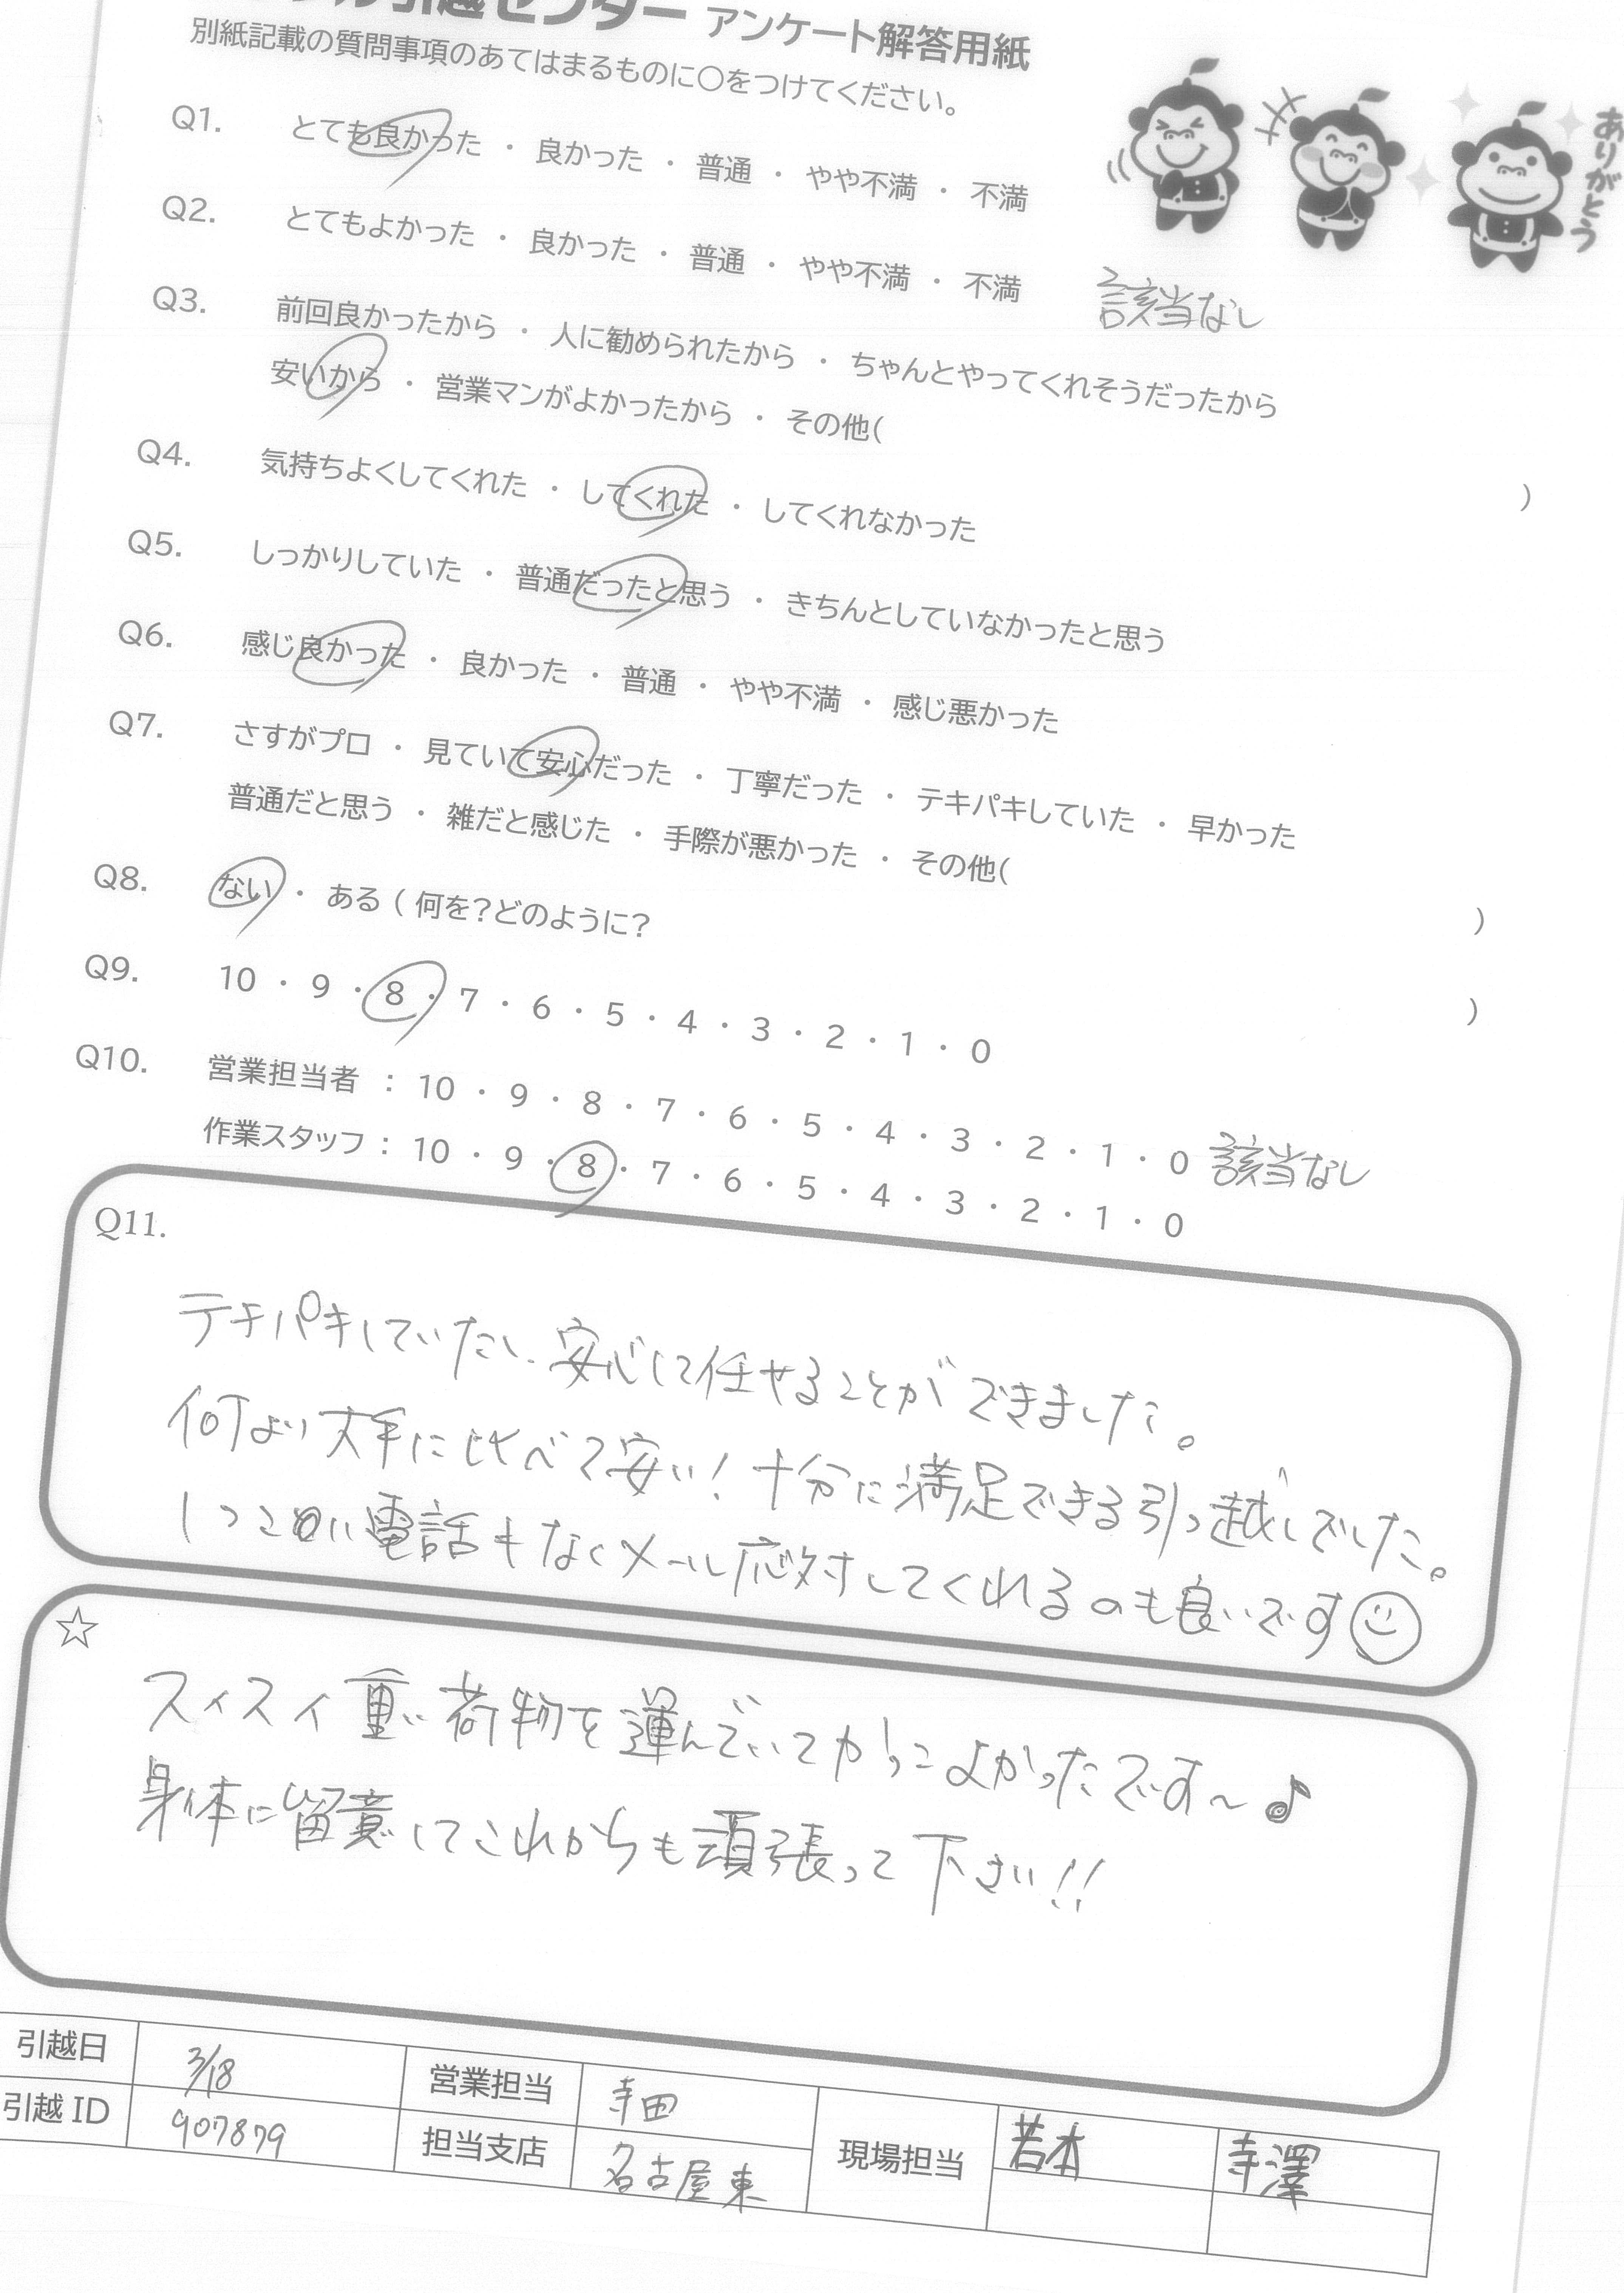 引越センター アンケート解答用紙
別紙記載の質問事項のあてはまるものに○をつけてください。
ありがとう
Q1. とても良かった ・ 良かった ・ 普通 ・ やや不満 ・ 不満
Q2. とてもよかった ・ 良かった ・ 普通 ・ やや不満 ・ 不満 該当なし
Q3. 前回良かったから ・ 人に勧められたから ・ ちゃんとやってくれそうだったから
安いから ・ 営業マンがよかったから ・ その他( )
Q4. 気持ちよくしてくれた ・ してくれた ・ してくれなかった
Q5. しっかりしていた ・ 普通だったと思う ・ きちんとしていなかったと思う
Q6. 感じ良かった ・ 良かった ・ 普通 ・ やや不満 ・ 感じ悪かった
Q7. さすがプロ ・ 見ていて安心だった ・ 丁寧だった ・ テキパキしていた ・ 早かった
普通だと思う ・ 雑だと感じた ・ 手際が悪かった ・ その他( )
Q8. ない ・ ある ( 何を?どのように? )
Q9. 10 ・ 9 ・ 8 ・ 7 ・ 6 ・ 5 ・ 4 ・ 3 ・ 2 ・ 1 ・ 0
Q10. 営業担当者 : 10 ・ 9 ・ 8 ・ 7 ・ 6 ・ 5 ・ 4 ・ 3 ・ 2 ・ 1 ・ 0 該当なし
作業スタッフ : 10 ・ 9 ・ 8 ・ 7 ・ 6 ・ 5 ・ 4 ・ 3 ・ 2 ・ 1 ・ 0
Q11.
テキパキしていたし、安心して任せることができました。
何より大手に比べて安い! 十分に満足できる引っ越しでした。
しつこい電話もなくメール応対してくれるのも良いです
☆
スイスイ重い荷物を運んでいてかっこよかったです～♪
身体に留意してこれからも頑張って下さい!!
引越日 3/18 営業担当 寺田 現場担当 若本 寺澤
引越ID 907879 担当支店 名古屋東